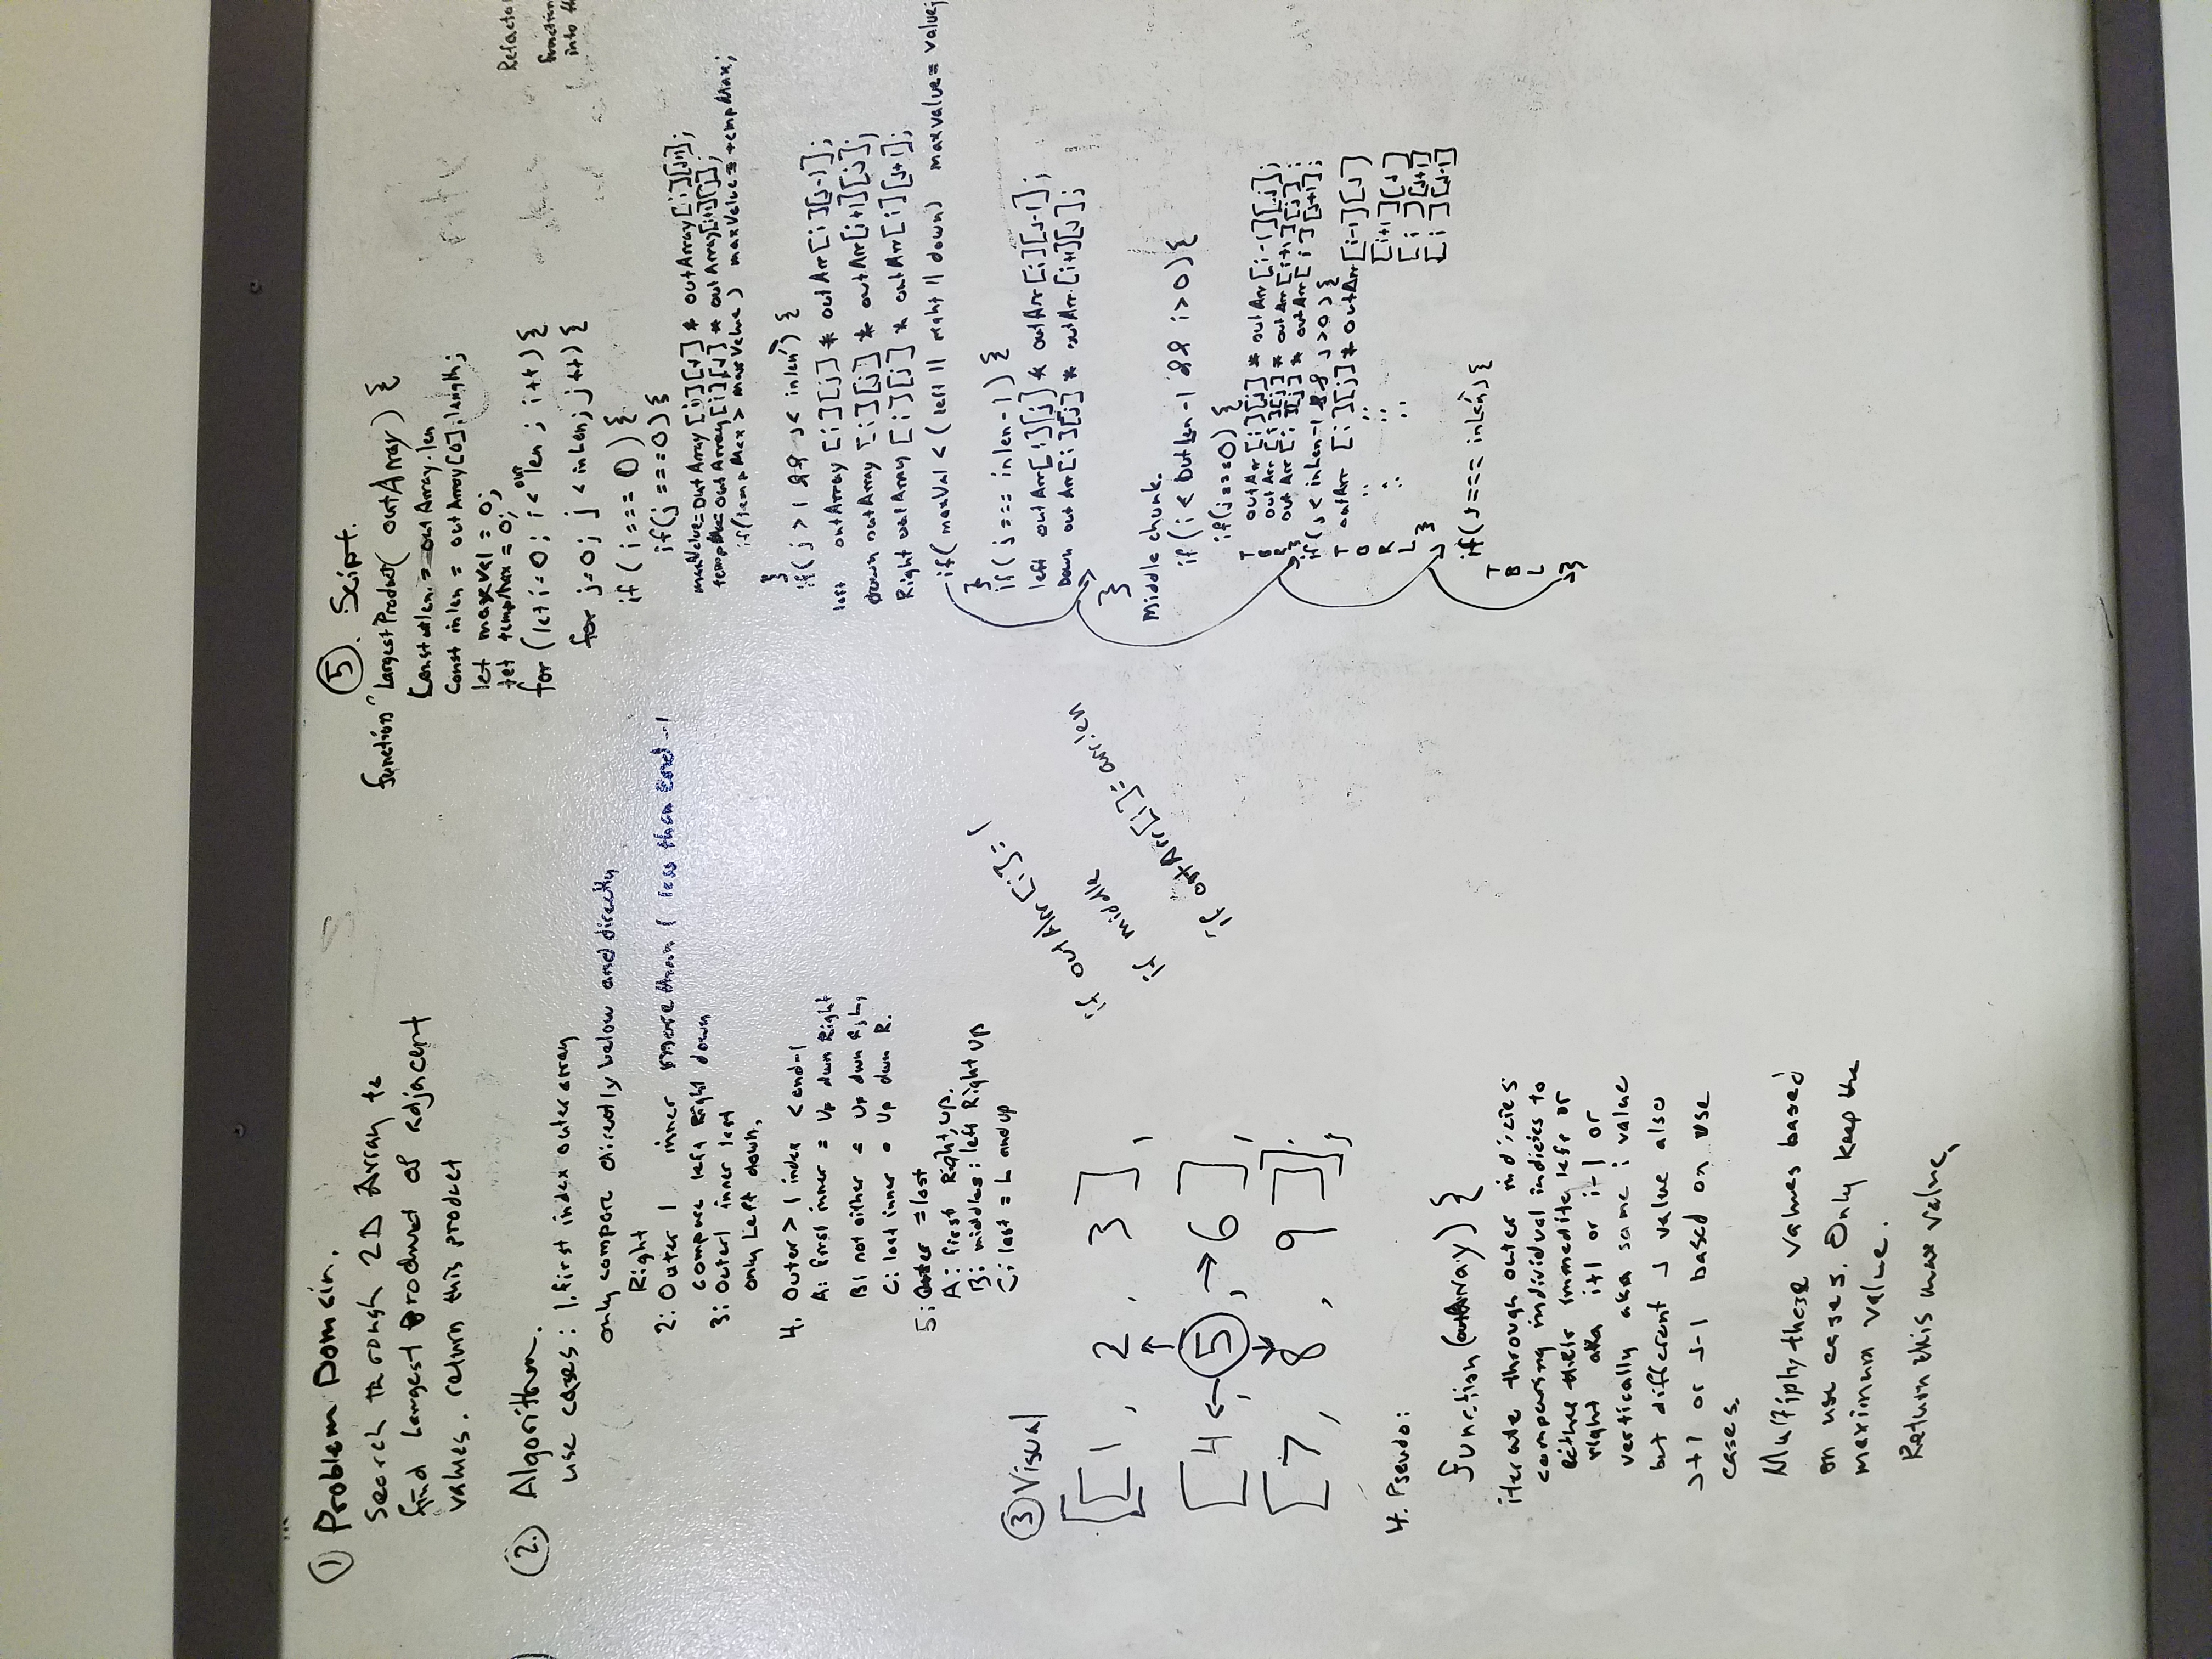 ① Problem Domain.
Search through 2D Array to
find Largest Product of adjacent
values. return this product
②. Algorithm.
use cases: 1. first index outer array
only compare directly below and directly
Right
2: Outer 1 inner more than 1 less than end -1
compare left Right down
3: Outer 1 inner last
only Left down.
4. Outer > 1 index < end-1
A: first inner = Up down Right
B: not either = Up down R, L,
C: last inner = Up down R.
5: Outer = last
A: first Right, up.
B: middles: left Right up
C: last = L and up
③ Visual
[[1, 2, 3],
[4 ← , ⑤ , → 6],
[7, 8, 9]];
if outArr[i] = 1
if middle
if outArr[i] = arr.len
4. Pseudo:
function (outArray) {
iterate through outer indicies
comparing individual indicies to
either their immedite left or
right aka i+1 or i-1 or
vertically aka same i value
but different J value also
J+1 or J-1 based on use
cases.
Multiply these values based
on use cases. Only keep the
maximum value.
Return this max value,
⑤. Script.
function LargestProduct( outArray) {
Const len = outArray.len
Const inlen = outArray[0].length;
let maxVal = 0;
let tempMax = 0;
for (let i=0; i < out len ; i++) {
for j=0; j < inLen; j++) {
if ( i === 0) {
if(j ===0) {
maxValue = outArray [i][j] * outArray[i][j+1];
tempMax = outArray [i][j] * outArray[i+1][j];
if(tempMax > maxValue ) maxValue = tempMax;
}
if( j > 1 && j < inlen ) {
left outArray [i][j] * outArr[i][j-1];
Down outArray [i][j] * outArr[i+1][j];
Right outArray [i][j] * outArr[i][j+1];
if( maxVal < ( left || right || down) maxvalue = value;
}
if( j === inlen-1) {
left outArr[i][j] * outArr[i][j-1];
Down outArr[i][j] * outArr[i+1][j];
}
Middle chunk.
if(i < OutLen -1 && i>0){
if(j===0) {
T outArr [i][j] * outArr[i-1][j];
B outArr [i][j] * outArr[i+1][j];
R outArr [i][j] * outArr[i][j+1];
}
if(j < inLen-1 && j>0){
T outArr [i][j] * outArr[i-1][J]
B " " [i+1][J]
R " " [i][J+1]
L " " [i][J-1]
}
if(J=== inLen){
T
B
L
}
Refacto
function
into th